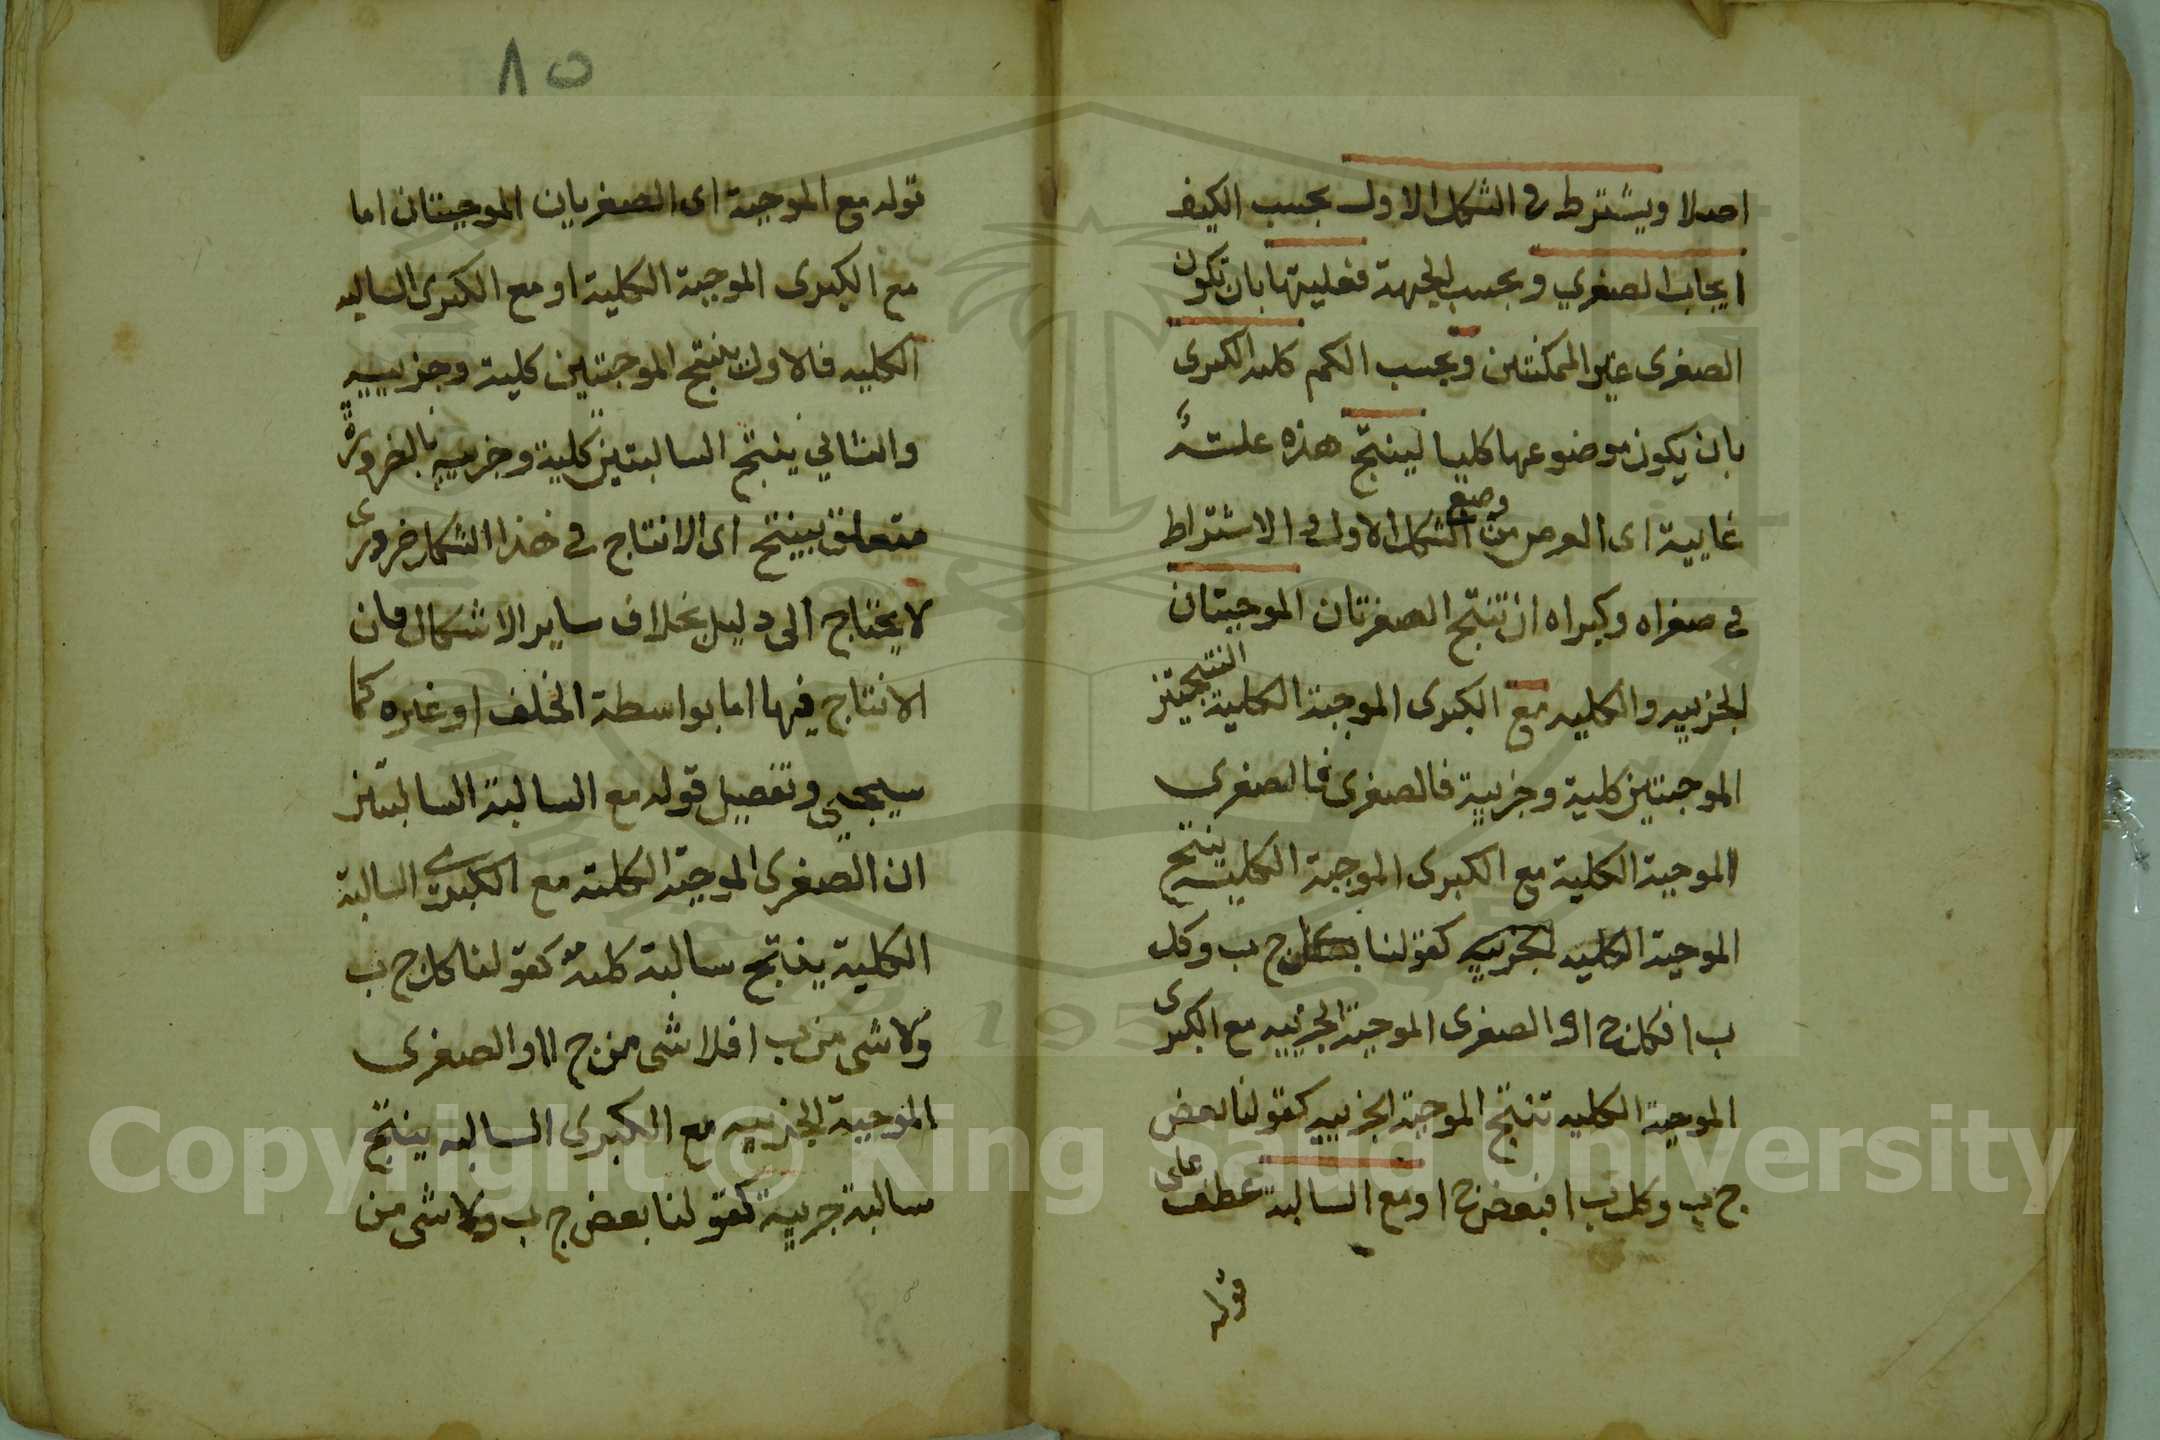 اصلا ويشترط في الشكل الاول بحسب الكيف
ايجاب الصغري وبحسب الجهة فعليتها بان تكون
الصغرى غير الممكنتين وبحسب الكم كلية الكبرى
بان يكون موضوعها كليا لينتج هذه علة
غايية اى الغرض من وضع الشكل الاول و الاشتراط
في صغراه وكبراه ان تنتج الصغرتان الموجبتان
الجزييه والكليه مع الكبرى الموجبة الكلية النتيجتين
الموجبتين كلية وجزيية فالصغرى فالصغرى
الموجبة الكلية مع الكبرى الموجبة الكلية ينتج
الموجبة الكليه الجزييه كقولنا كل ج ب وكل
ب ا فكل ج ا و الصغرى الموجبة الجزييه مع الكبرى
الموجبة الكليه تنتج الموجبة الجزييه كقولنا بعض
ج ب وكل ب ا فبعض ج ا ومع السالبة عطف على
قوله
٨٥
قوله مع الموجبة اى الصغريان الموجبتان اما
مع الكبرى الموجبة الكلية او مع الكبرى السالبه
الكليه فالاول ينتج الموجبتين كلية وجزييه
والثاني ينتج السالبتين كلية وجزييه بالضرورة
متعلق بينتج اى الانتاج في هذا الشكل ضرورى
لا يحتاج الى دليل بخلاف ساير الاشكال فان
الانتاج فيها اما بواسطة الخلف او غيره كما
سيجيى وتفصيل قوله مع السالبة السالبتين
ان الصغرى الموجبة الكلية مع الكبرى السالبة
الكلية ينتج سالبة كلية كقولنا كل ج ب
ولا شى من ب ا فلا شى من ج ا او الصغرى
الموجبة الجزييه مع الكبرى السالبه ينتج
سالبة جزيية كقولنا بعض ج ب ولا شى من
Copyright © King Saud University
1957